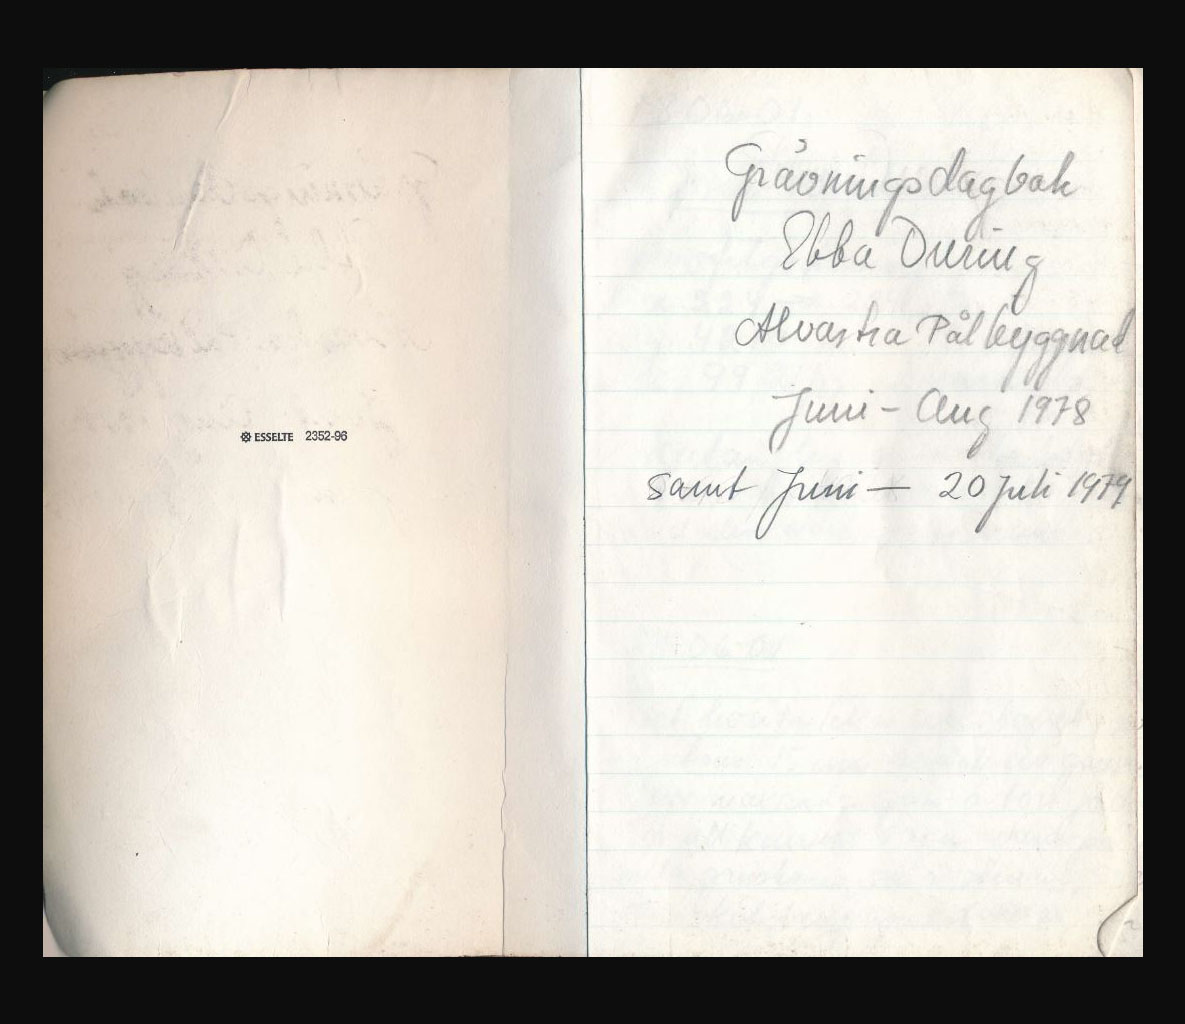 ESSELTE 2352-96
Grävningsdagbok
Ebba During
Alvastra Pålbyggnad
Juni - Aug 1978
samt Juni — 20 Juli 1979